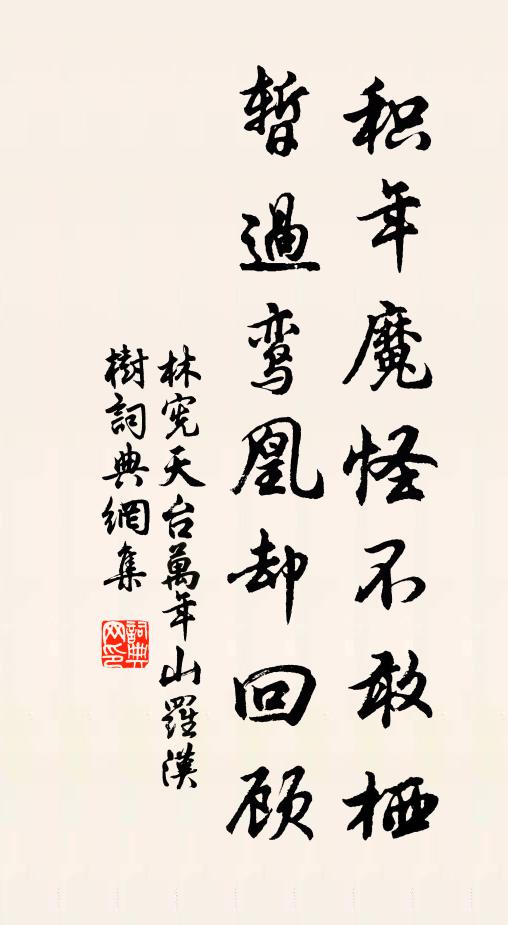 积年魔怪不敢栖
暂過鸾凰却回顾
林宪天台萬年山羅漢
樹詞典網集
詞典
网印